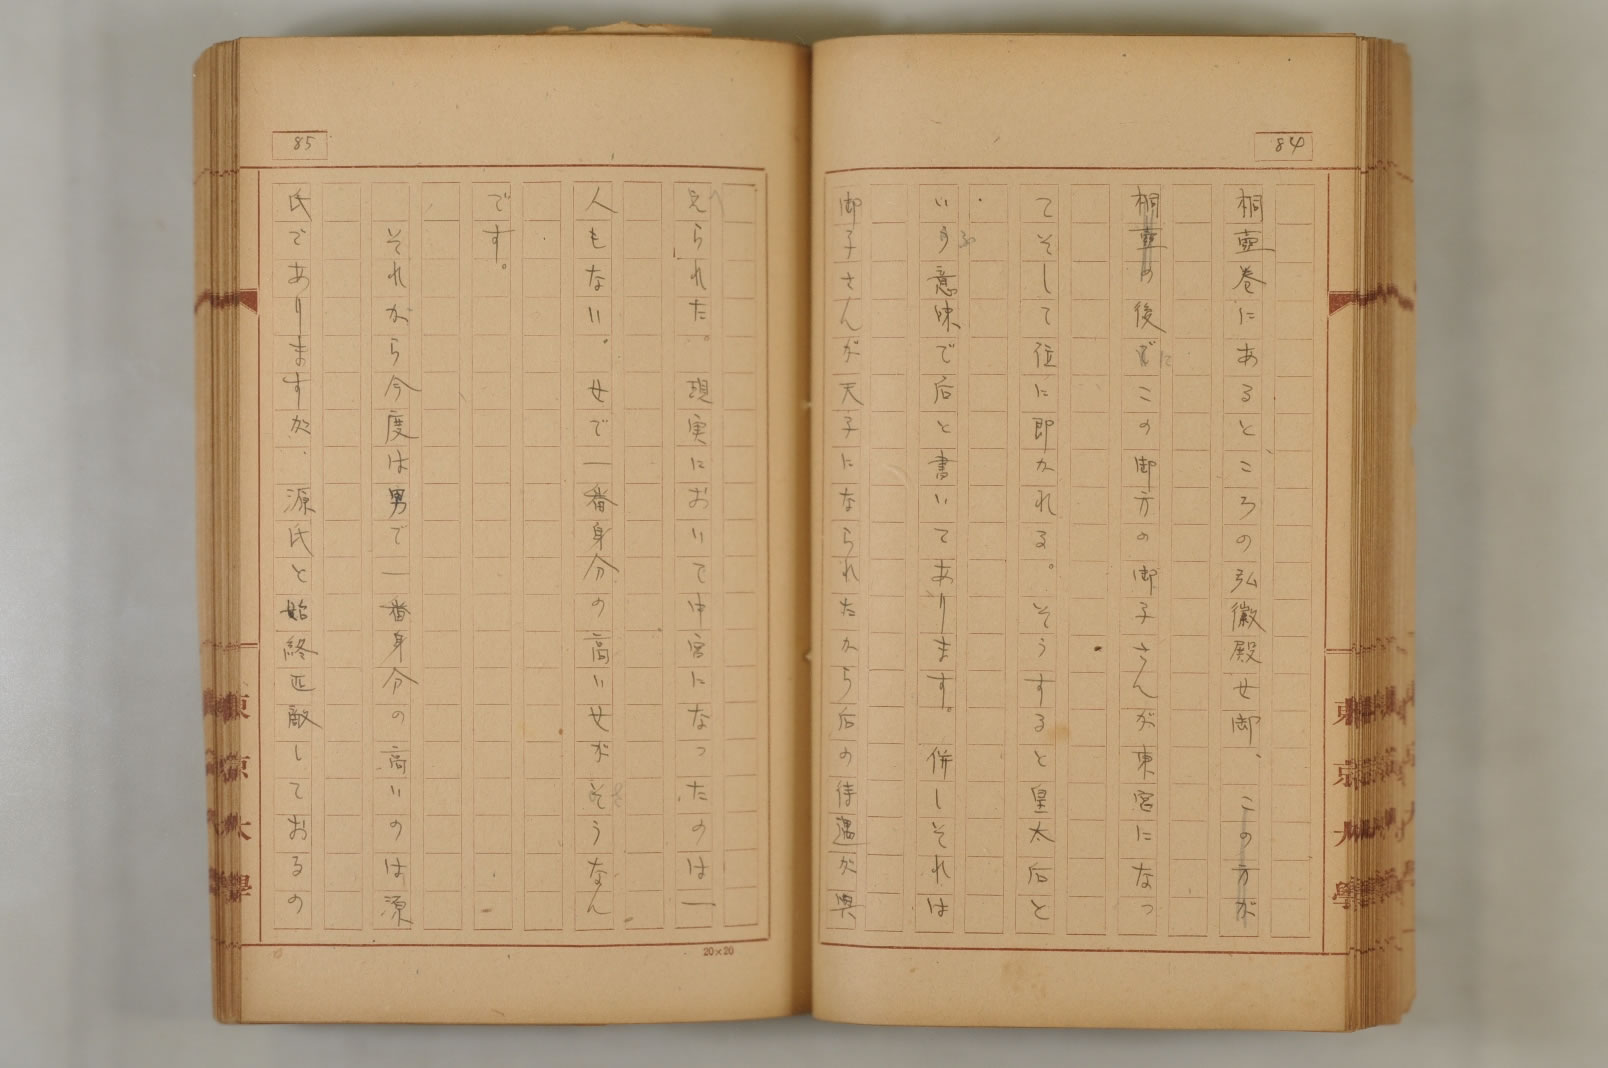 84
桐壺巻にあるところの弘徽殿女御、この方が
桐壺の後でにこの御方の御子さんが東宮になっ
てそして位に即かれる。そうすると皇太后と
いうふ意味で后と書いてあります。併しそれは
御子さんが天子になられたから后の待遇が與
85
えへられた。現実において中宮になったのは一
人もない。女で一番身分の高い女がそうなん
です。
それから今度は男で一番身分の高いのは源
氏でありますが、源氏と始終匹敵しておるの
20×20
東京大學
東京大學